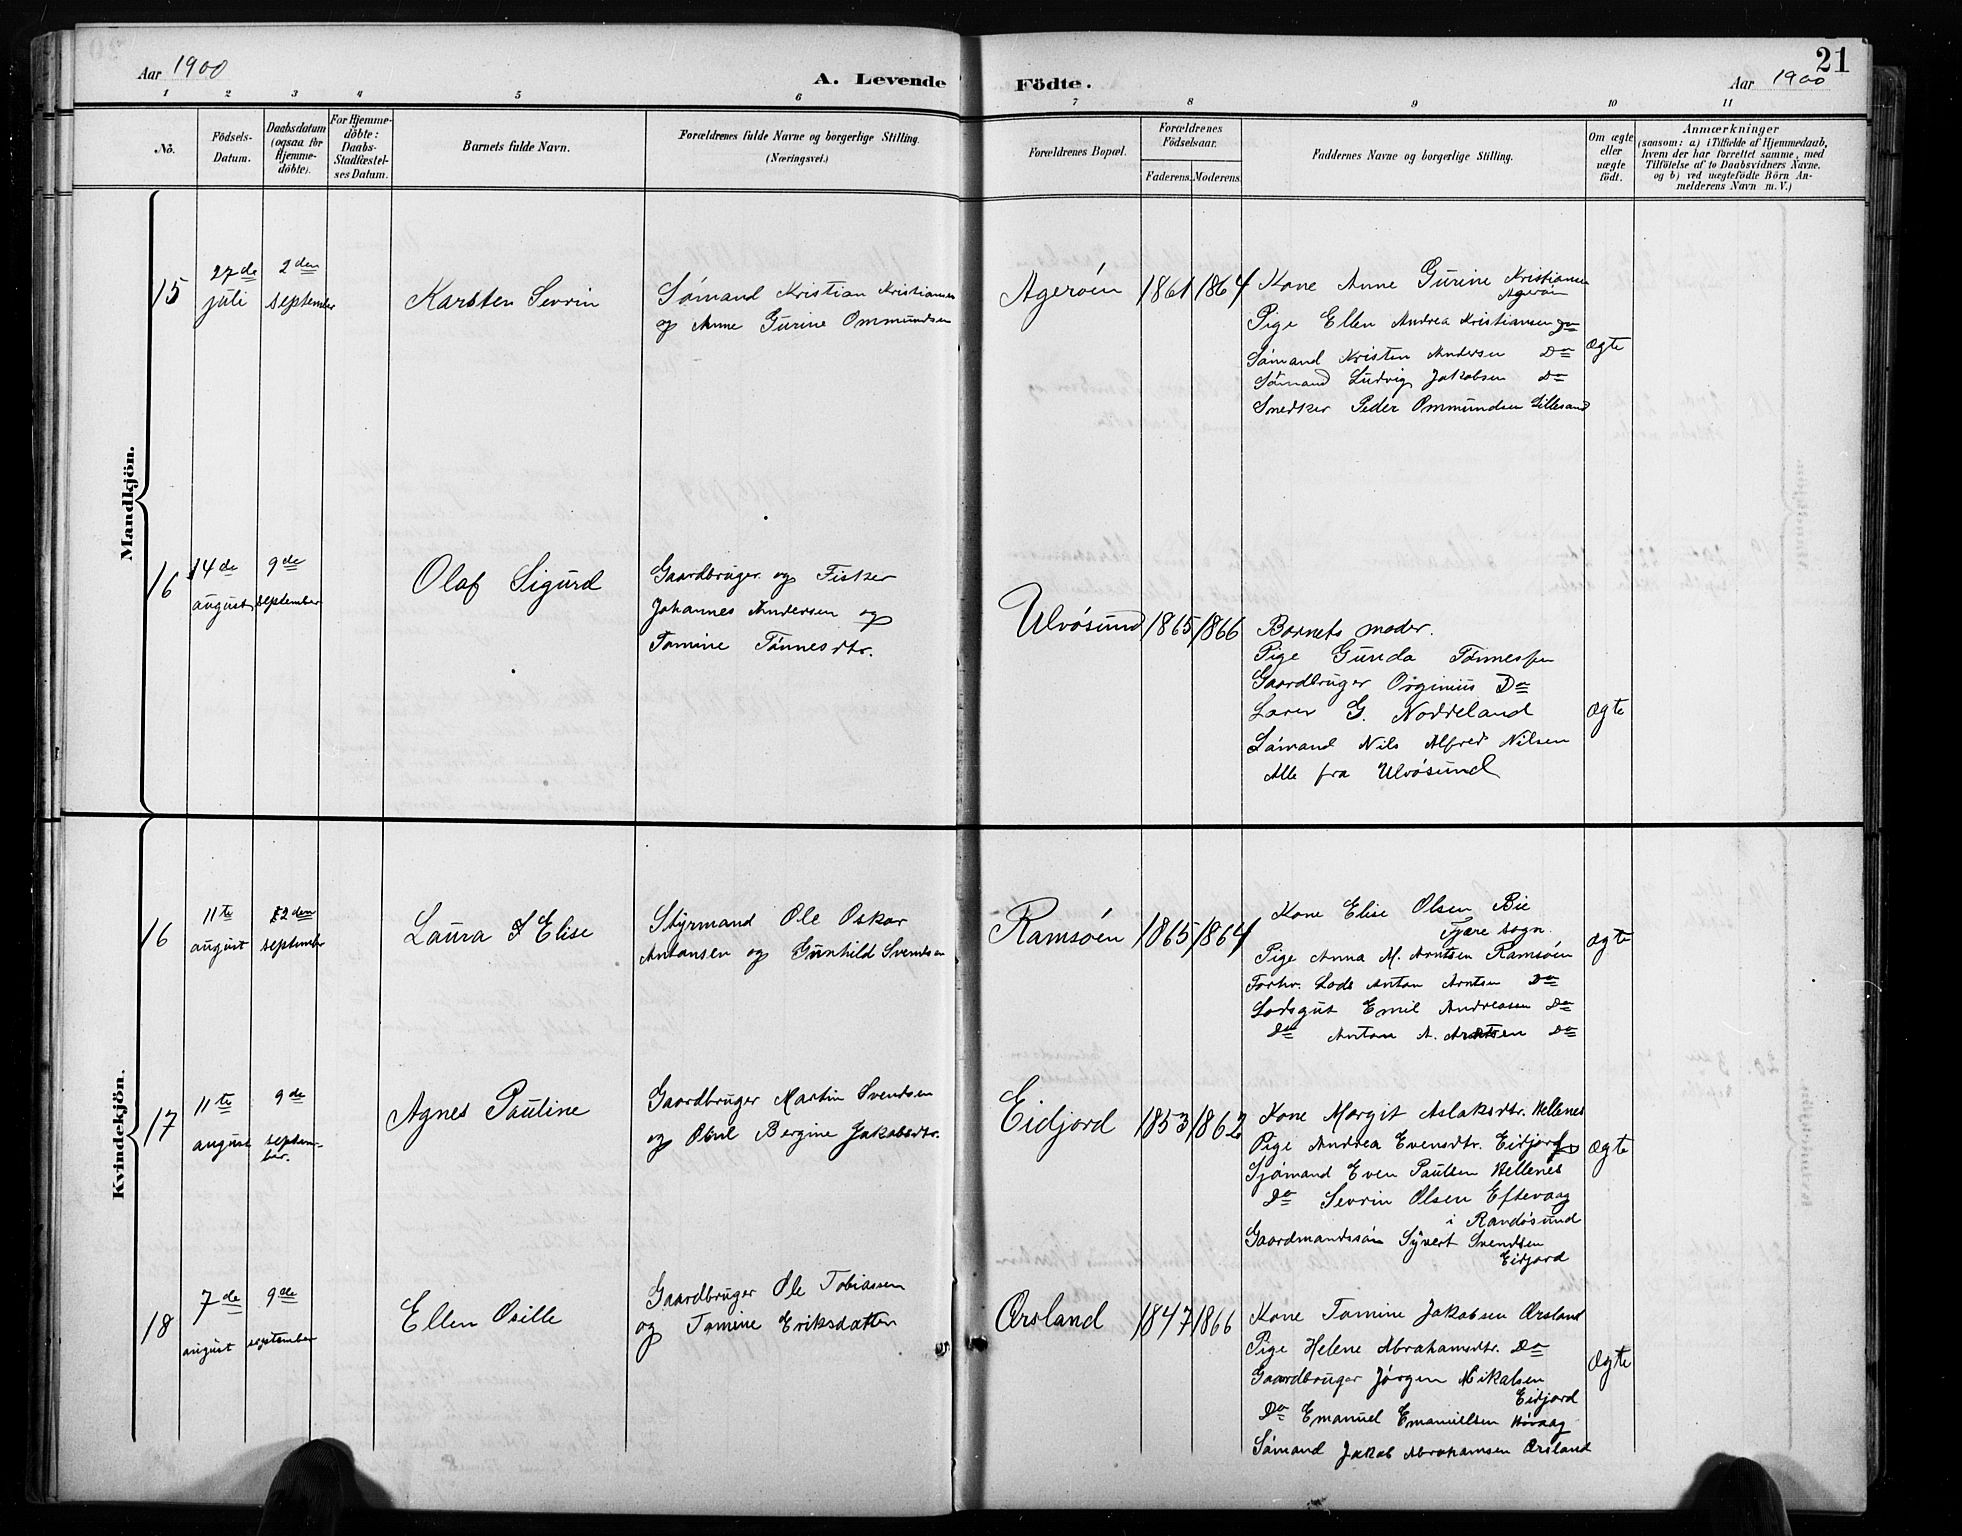 21
Aar 1900
A. Levende Födte.
Aar 1900
1 2 3 4 5 6 7 8 9 10 11
No.
Födsels-Datum.
Daabsdatum (ogsaa for Hjemme-döbte).
For Hjemme-döbte: Daabs-Stadfæstel-ses Datum.
Barnets fulde Navn.
Forældrenes fulde Navne og borgerlige Stilling.
(Næringsvei.)
Forældrenes Bopæl.
Forældrenes Födselsaar.
Faderens. Moderens.
Faddernes Navne og borgerlige Stilling.
Om ægte eller uægte födt.
Anmærkninger
(saasom: a) i Tilfælde af Hjemmedaab,
hvem der har forrettet samme, med
Tilföielse af to Daabsvidners Navne.
og b) ved uægtefödte Börn An-
melderens Navn m. V.)
Mandkjön.
15
27de juli
2den september
Karsten Sevrin
Sømand Kristian Kristiansen
og Anne Gurine Ommundsen
Agerøen
1861 1864
Kone Anne Gurine Kristiansen
Agerøen
Pige Ellen Andrea Kristiansen Do
Sømand Kristen Andersen Do
Sømand Ludvig Jakobsen Do
Snedker Peder Ommundsen Lillesand
Ægte
16
14de august
9de september
Olaf Sigurd
Gaardbruger og Fisker
Johannes Andersen og
Tomine Tønnesdtr.
Ulvøsund
1865 1866
Barnets moder.
Pige Gunda Tønnessen
Gaardbruger Orginius Do
Lærer G. Noddeland
Sømand Nils Alfred Nilsen
Alle fra Ulvøsund
Ægte
Kvindekjön.
16
11te august
2den september
Laura Elise
Styrmand Ole Oskar
Antonsen og Gunhild Svendsen
Ramsøen
1865 1864
Kone Elise Olsen Bie
Fjære sogn.
Pige Anna M. Arntsen Ramsøen
Forhv. Lods Anton Arntsen Do
Lodsgut Emil Andreasen Do
Do Anton A. Arntsen Do
Ægte
17
11te august
9de septem-
ber.
Agnes Pauline
Gaardbruger Martin Svendsen
og Bergine Jakobsdtr.
Eidjord
1853 1862
Kone Margit Aslaksdtr. Hellenes
Pige Andrea Evensdtr. Eidjord
Sjømand Even Paulsen Hellenes
Do Sevrin Olsen Eftevaag
i Randøsund
Gaardmandssøn Syvert Svendsen
Eidjord
Ægte
18
7de august
9de september
Ellen Osille
Gaardbruger Ole Tobiassen
og Tomine Eriksdatter
Ørsland
1847 1866
Kone Tomine Jakobsen Ørsland
Pige Helene Abrahamsdtr. Do
Gaardbruger Jørgen Mikalsen
Eidjord
Do Emanuel Emanuelsen Høvaag
Sømand Jakob Abrahamsen Ørsland
Ægte